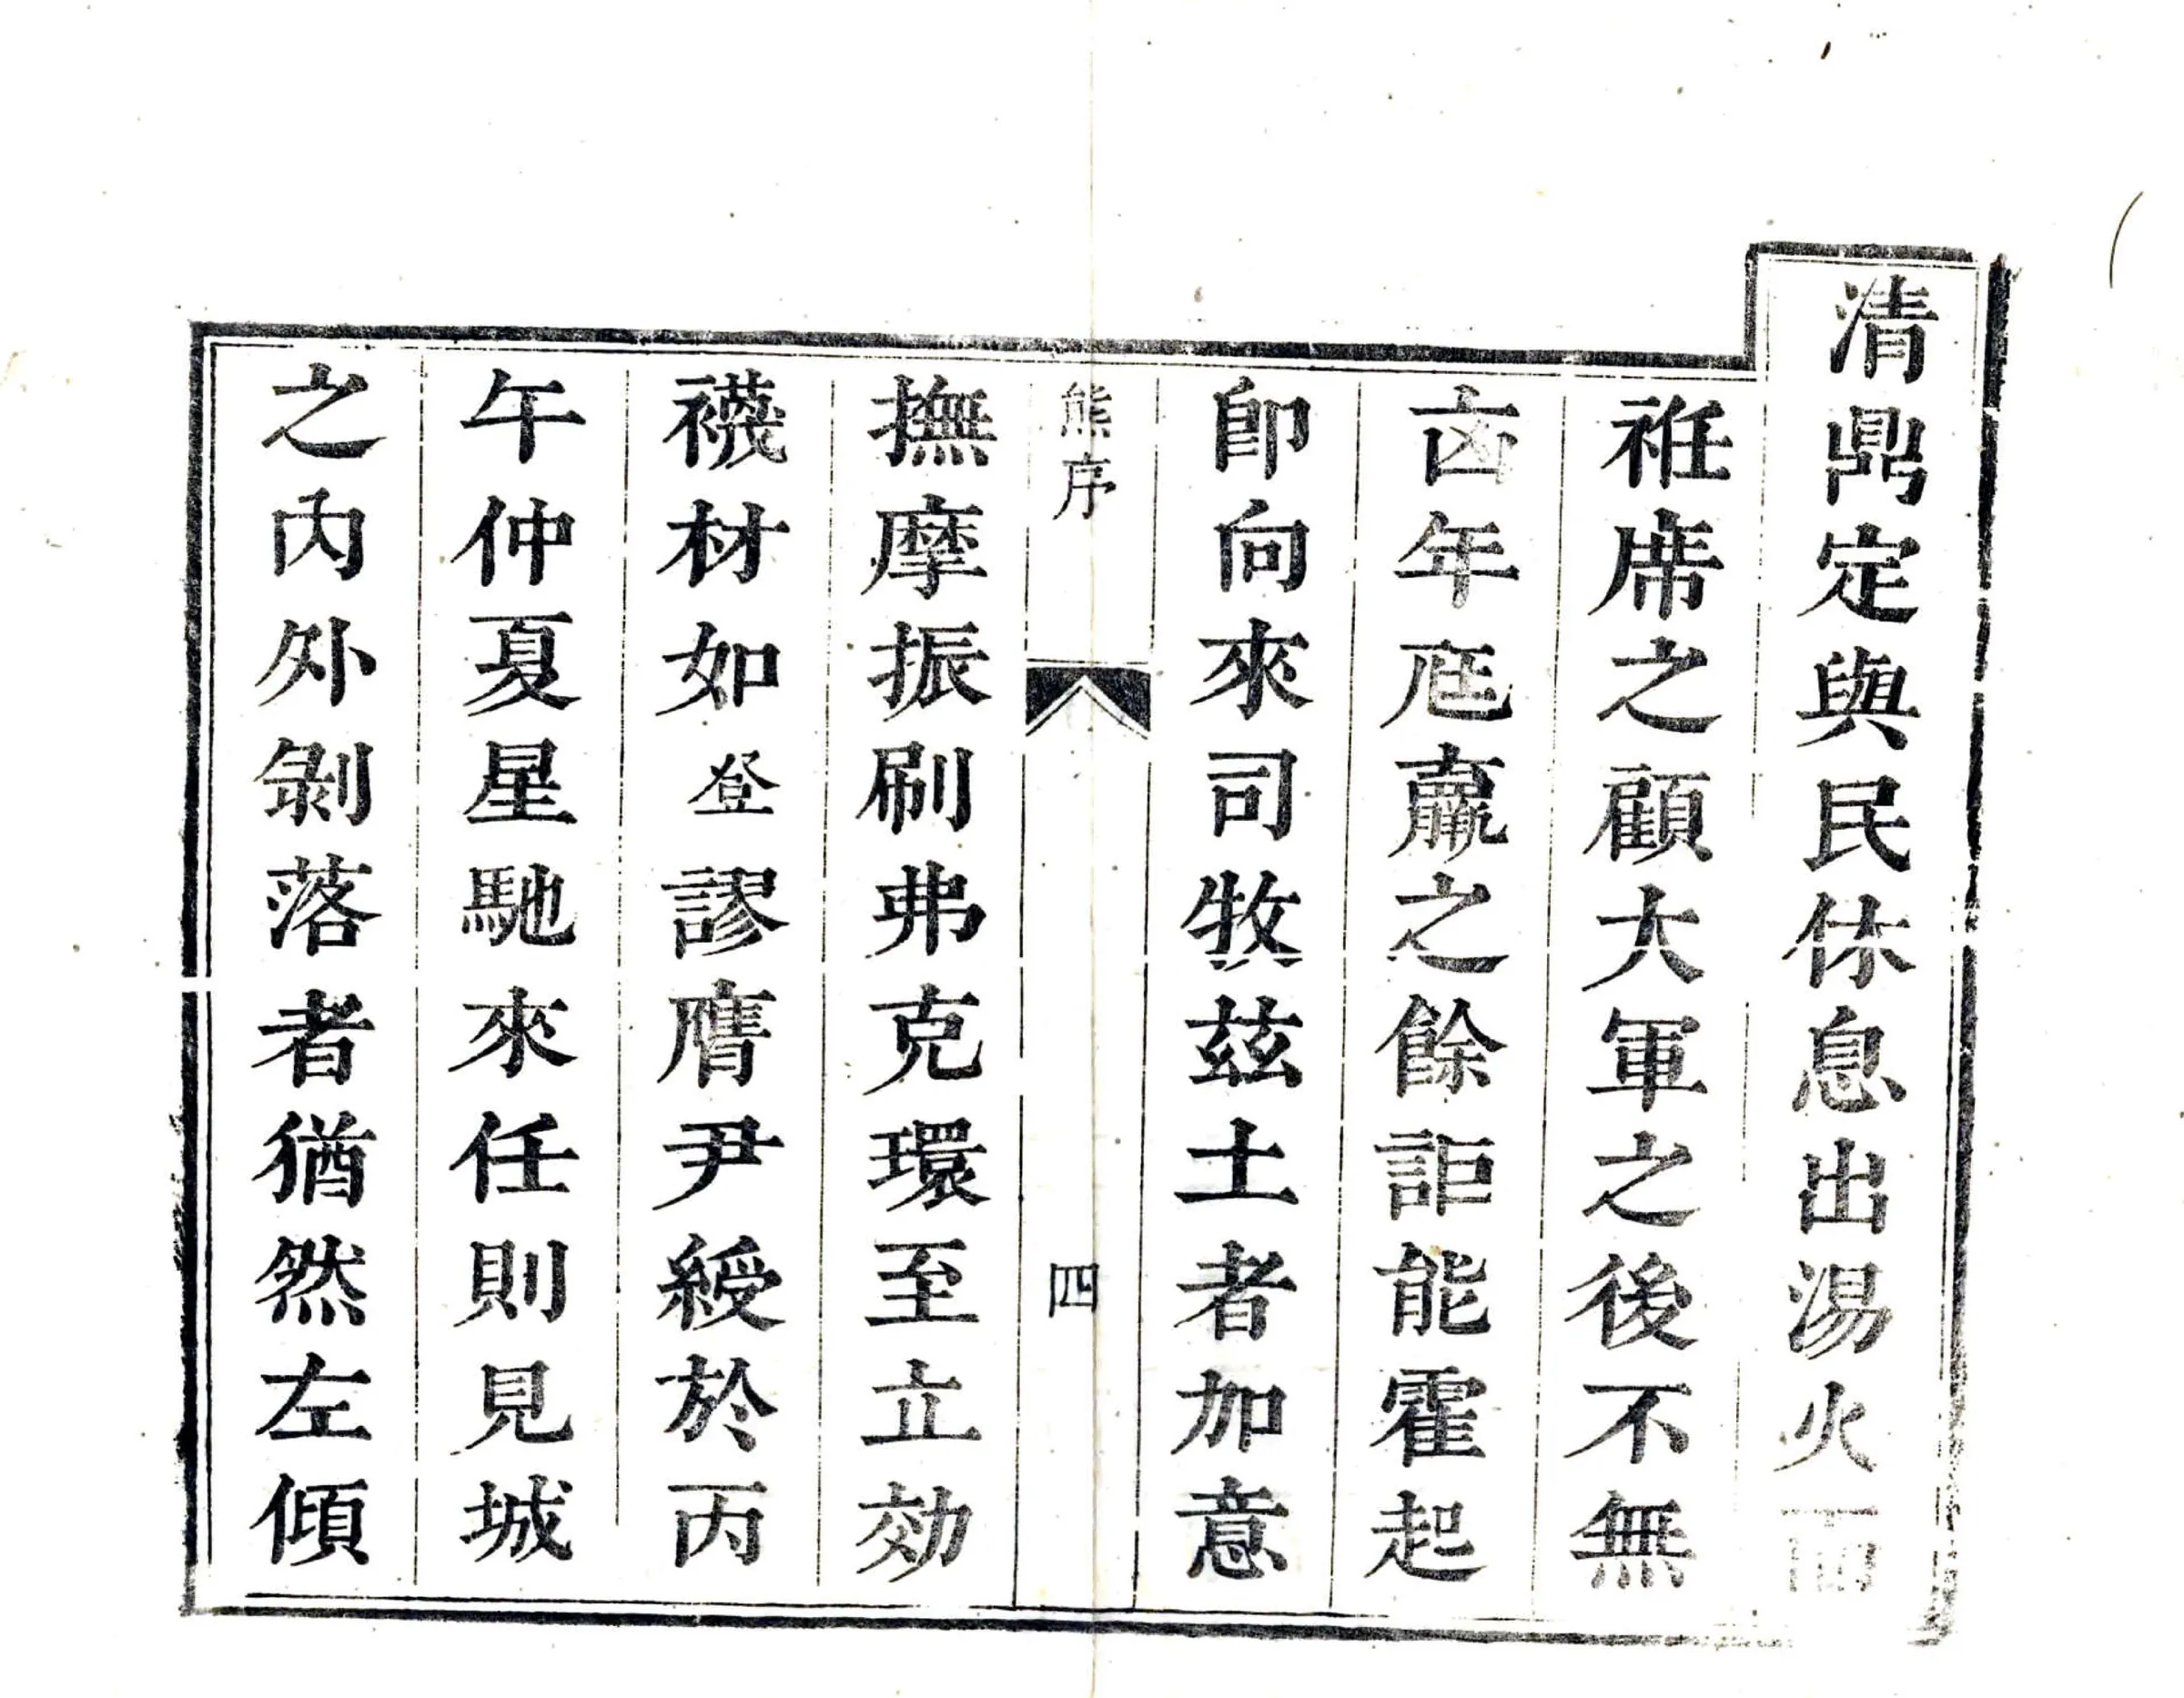 清鼎定與民休息出湯火而
袵席之顧大軍之後不無
㐫年尫羸之餘詎能霍起
卽向來司牧茲土者加意
熊序
四
撫摩振刷弗克環至立効
襪材如登謬膺尹綬於丙
午仲夏星馳來任則見城
之內外剝落者猶然左傾